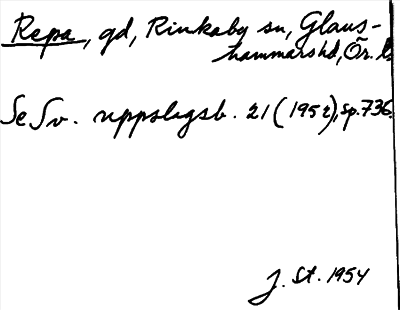 Repa, gd, Rinkaby sn, Glans-
hammarshd, Ör. l.
Se Sv. uppslagsb. 21 (1952), sp. 736.
J. St. 1954